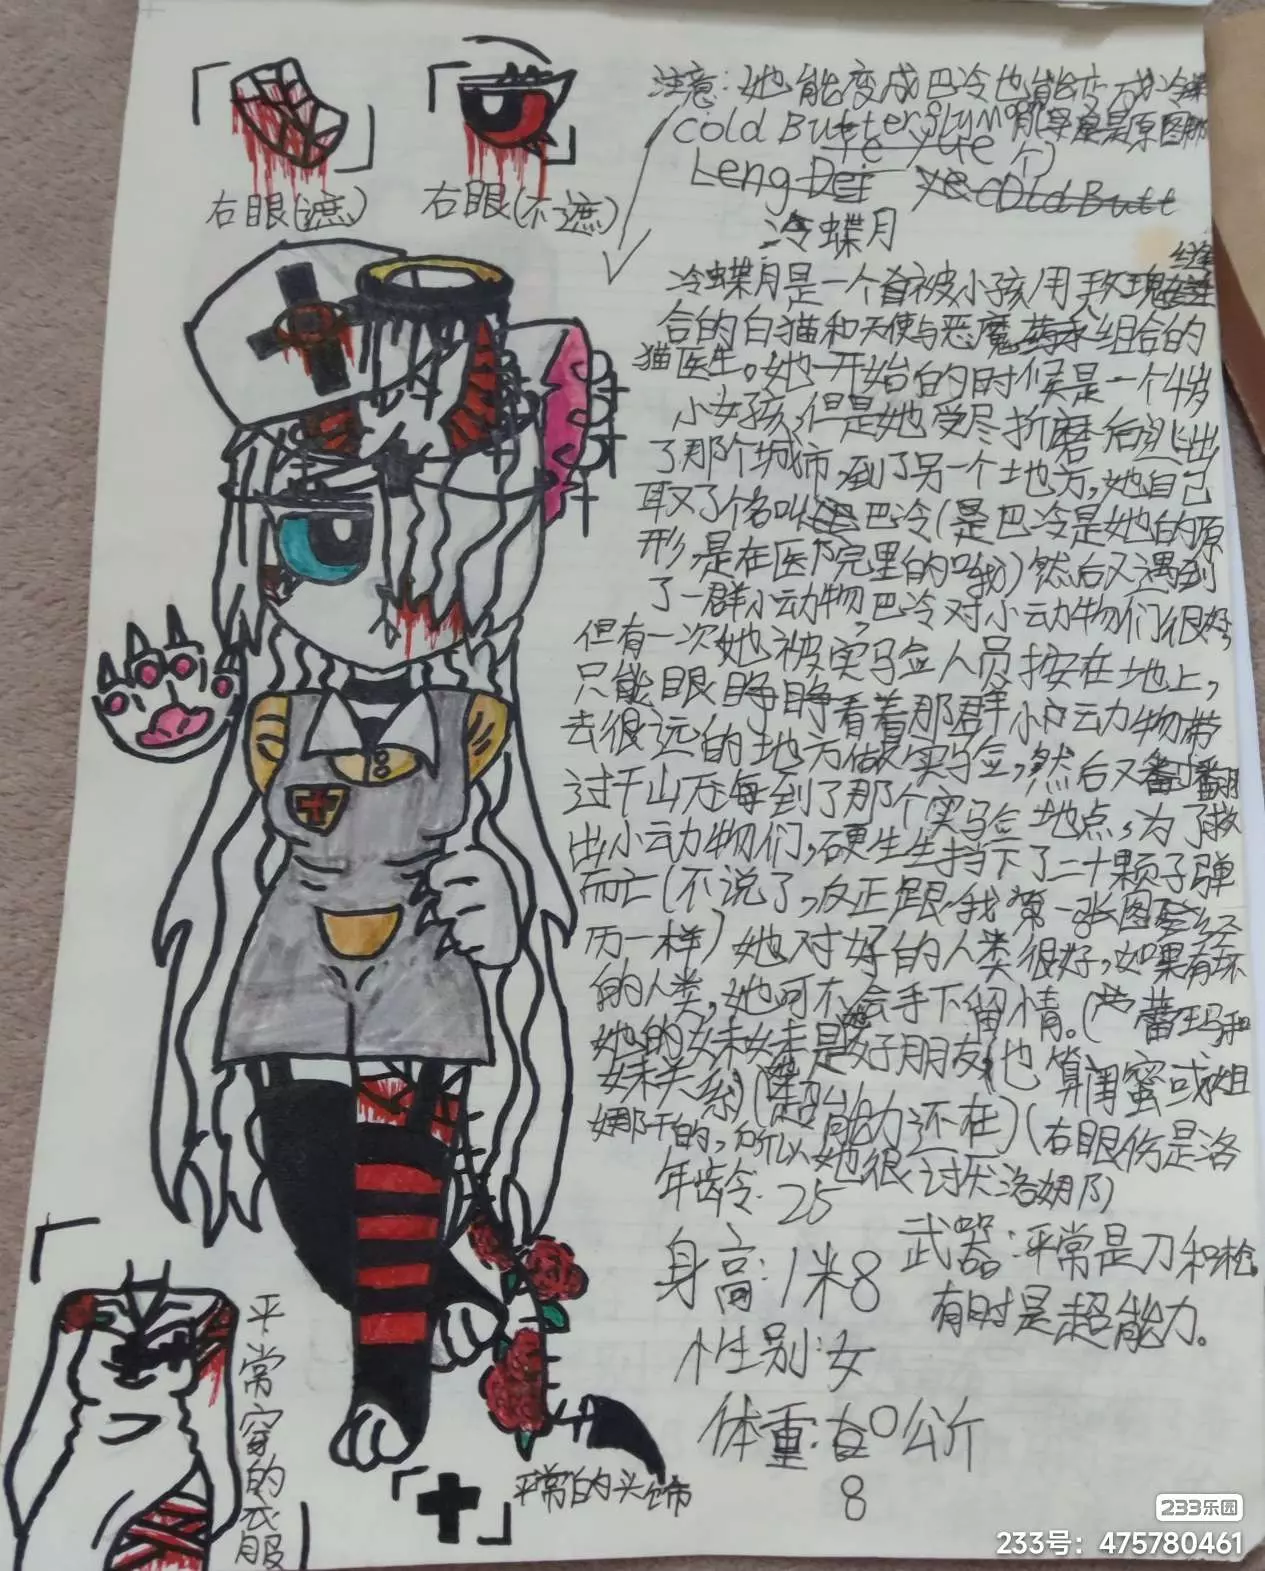 右眼(遮)
右眼(不遮)
注意:她能变成巴冷也能
cold Butter
Leng
冷蝶月
冷蝶月是一个被小孩用玫瑰缝
合的白猫和天使与恶魔组合的
猫医生。她一开始的时候是一个4岁
小女孩,但是她受尽折磨后逃出
了那个城市,到了另一个地方,她自己
取了个名叫巴冷(是巴冷是她的原
形,是在医院里的哦)然后又遇到
了一群小动物,巴冷对小动物们很好,
但有一次她被实马佥人员按在地上,
只能眼睁睁看着那群小动物带
去很远的地方做实马佥,然后又翻
过千山万每到了那个实马佥地点,为了救
出小动物们,硬生生挡下了二十颗子弹
而亡(不说了,反正跟我第一张图经
历一样)她对好的人类很好,如果有坏
的人类,她可不会手下留情。(芦蕾玛和
她的妹妹是好朋友也算闺蜜或姐
妹关系)(超能力还在)(右眼伤是洛
娜干的,所以她很讨厌洛娜)
年龄:25
身高:1米8
武器:平常是刀和枪,
有时是超能力。
性别:女
体重:80公斤
平常的头饰
平常穿的衣服
233乐园
233号:475780461